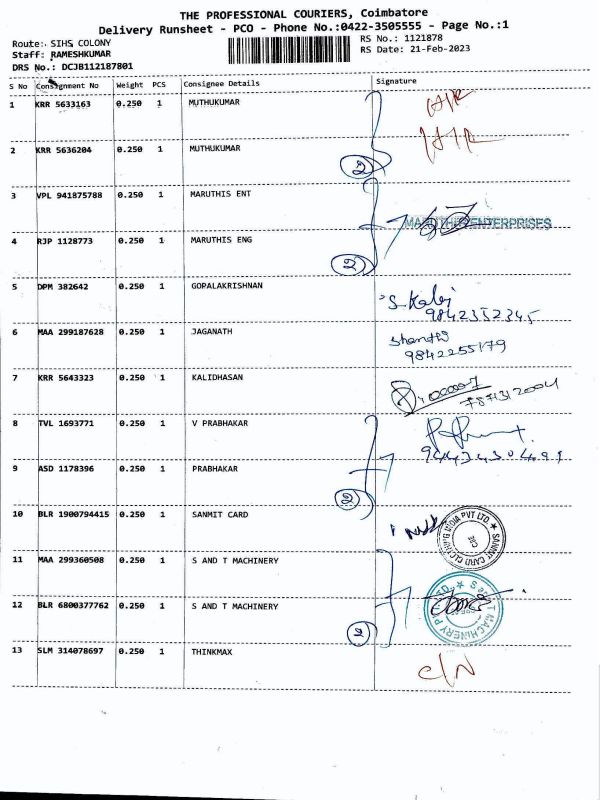 THE PROFESSIONAL COURIERS, Coimbatore
Delivery Runsheet - PCO - Phone No.:0422-3505555 - Page No.:1
Route: SIHS COLONY
RS No.: 1121878
Staff: RAMESHKUMAR
RS Date: 21-Feb-2023
DRS No.: DCJB112187801
S No Consignment No Weight PCS Consignee Details Signature
1 KRR 5633163 0.250 1 MUTHUKUMAR
2 KRR 5636204 0.250 1 MUTHUKUMAR
2
3 VPL 941875788 0.250 1 MARUTHIS ENT
MARUTHIS ENTERPRISES
4 RJP 1128773 0.250 1 MARUTHIS ENG
2
5 DPM 382642 0.250 1 GOPALAKRISHNAN
9842352345
6 MAA 299187628 0.250 1 JAGANATH
Shanthi
9842255179
7 KRR 5643323 0.250 1 KALIDHASAN
8 TVL 1693771 0.250 1 V PRABHAKAR
9 ASD 1178396 0.250 1 PRABHAKAR
2
10 BLR 1900794415 0.250 1 SANMIT CARD
11 MAA 299360508 0.250 1 S AND T MACHINERY
12 BLR 6800377762 0.250 1 S AND T MACHINERY
2
13 SLM 314078697 0.250 1 THINKMAX
C/N